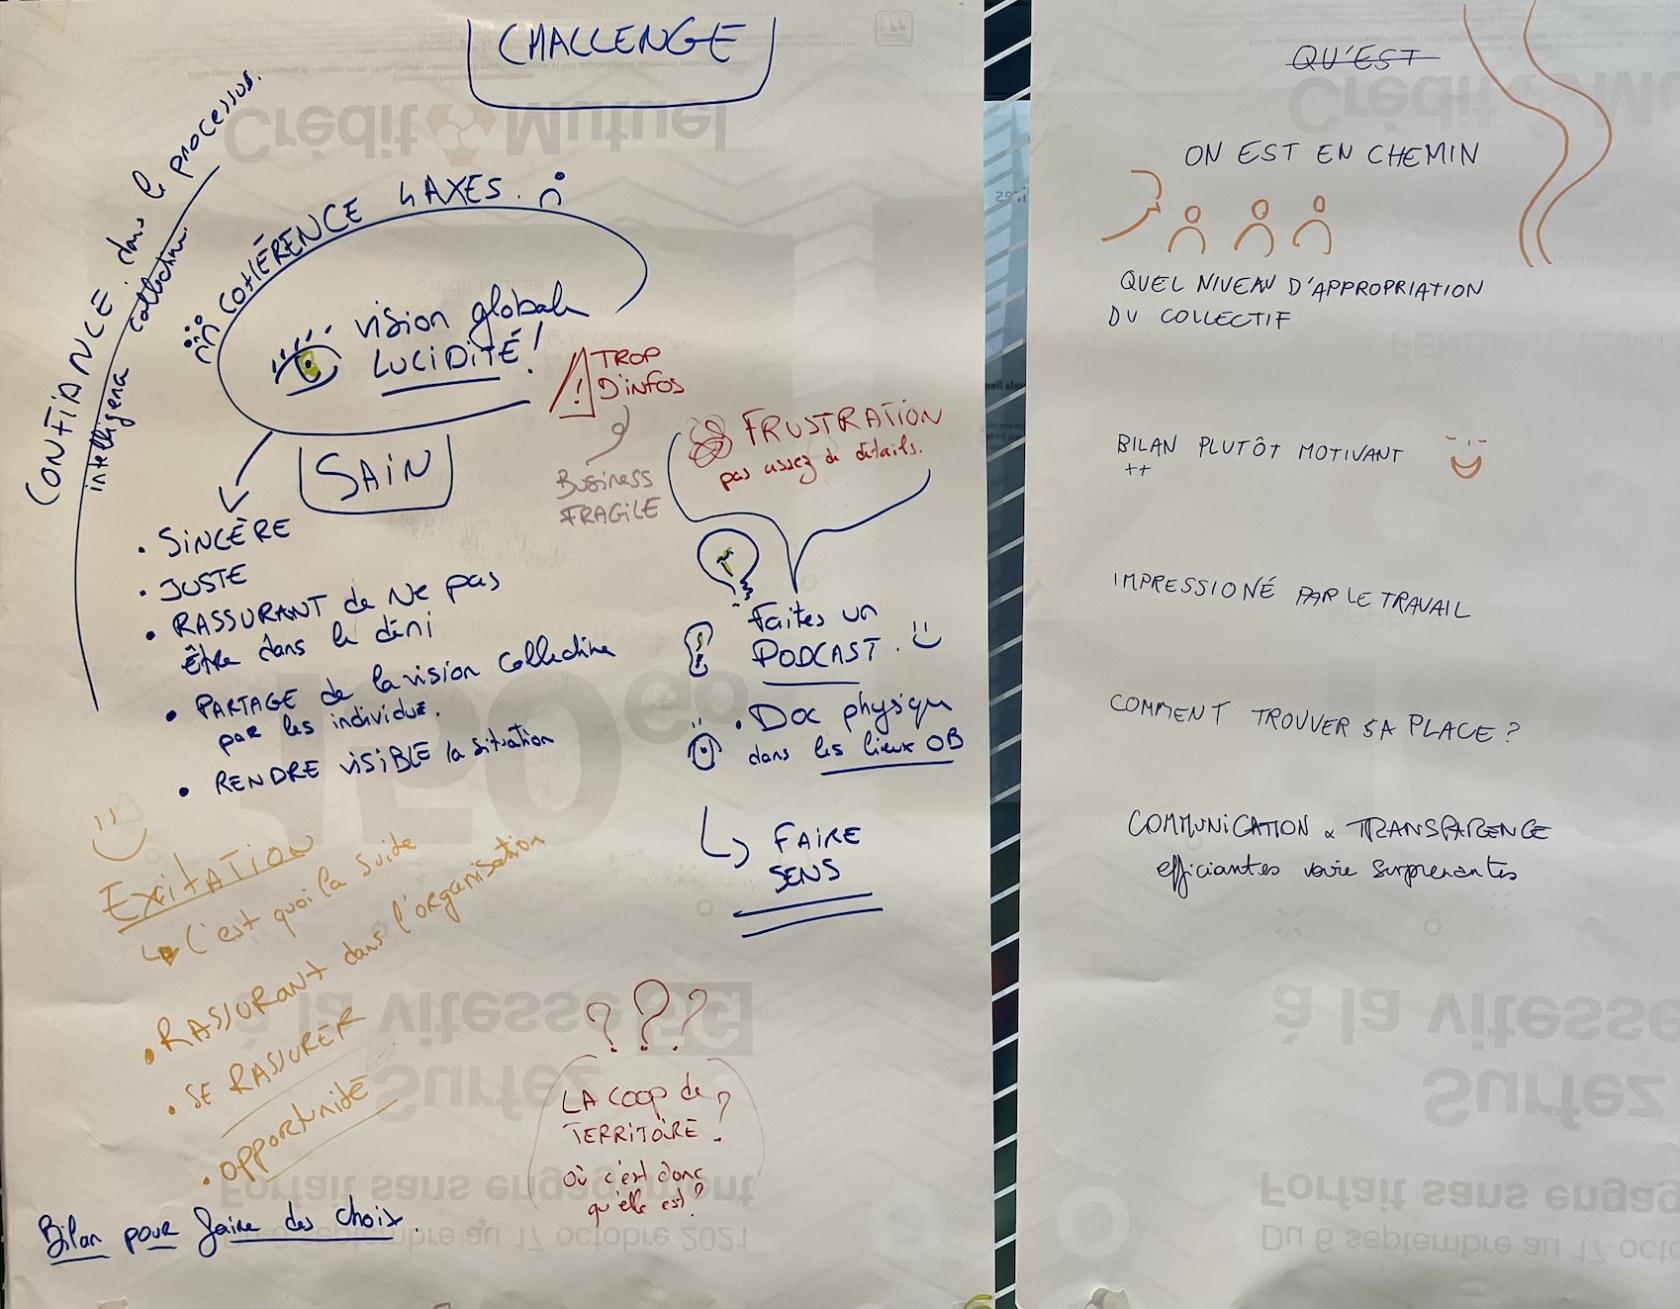 CHALLENGE
CONFIANCE dans le processus.
intelligence collective.
COHÉRENCE 4 AXES.
vision globale
LUCIDITÉ!
! TROP
D'iNFOS
BUSiNESS
FRAGiLE
SAiN
FRUSTRATiON
pas assez de détails.
• SiNCÈRE
• JUSTE
• RASSURANT de Ne pas
Être dans le déni
• PARTAGE de la vision collective
par les individus.
• RENDRE visiBLE la situation
Faites un
PODCAST.
• Doc physique
dans les lieux OB
FAIRE
SENS
ExcitATiON
C'est quoi la suite
• RASSURant dans l'organisation
• SE RASSURER
• opportunité
Bilan pour faire des choix.
? ? ?
LA COOP de
TERRiTOiRE ?
Où c'est donc
qu'elle est?
QU'EST
ON EST EN CHEMIN
QUEL NIVEAU D'APPROPRIATION
DU COLLECTIF
BILAN PLUTÔT MOTIVANT
++
IMPRESSIONÉ PAR LE TRAVAIL
COMMENT TROUVER SA PLACE ?
COMMUNICATION & TRANSPARENCE
efficiantes voire surprenantes
Crédit Mutuel
150Go
à la vitesse 5G
Surfez
Forfait sans engagement
Du 6 septembre au 17 octobre 2021
Crédit Mu
à la vitesse
Surfez
Forfait sans engag
Du 6 septembre au 17 octo